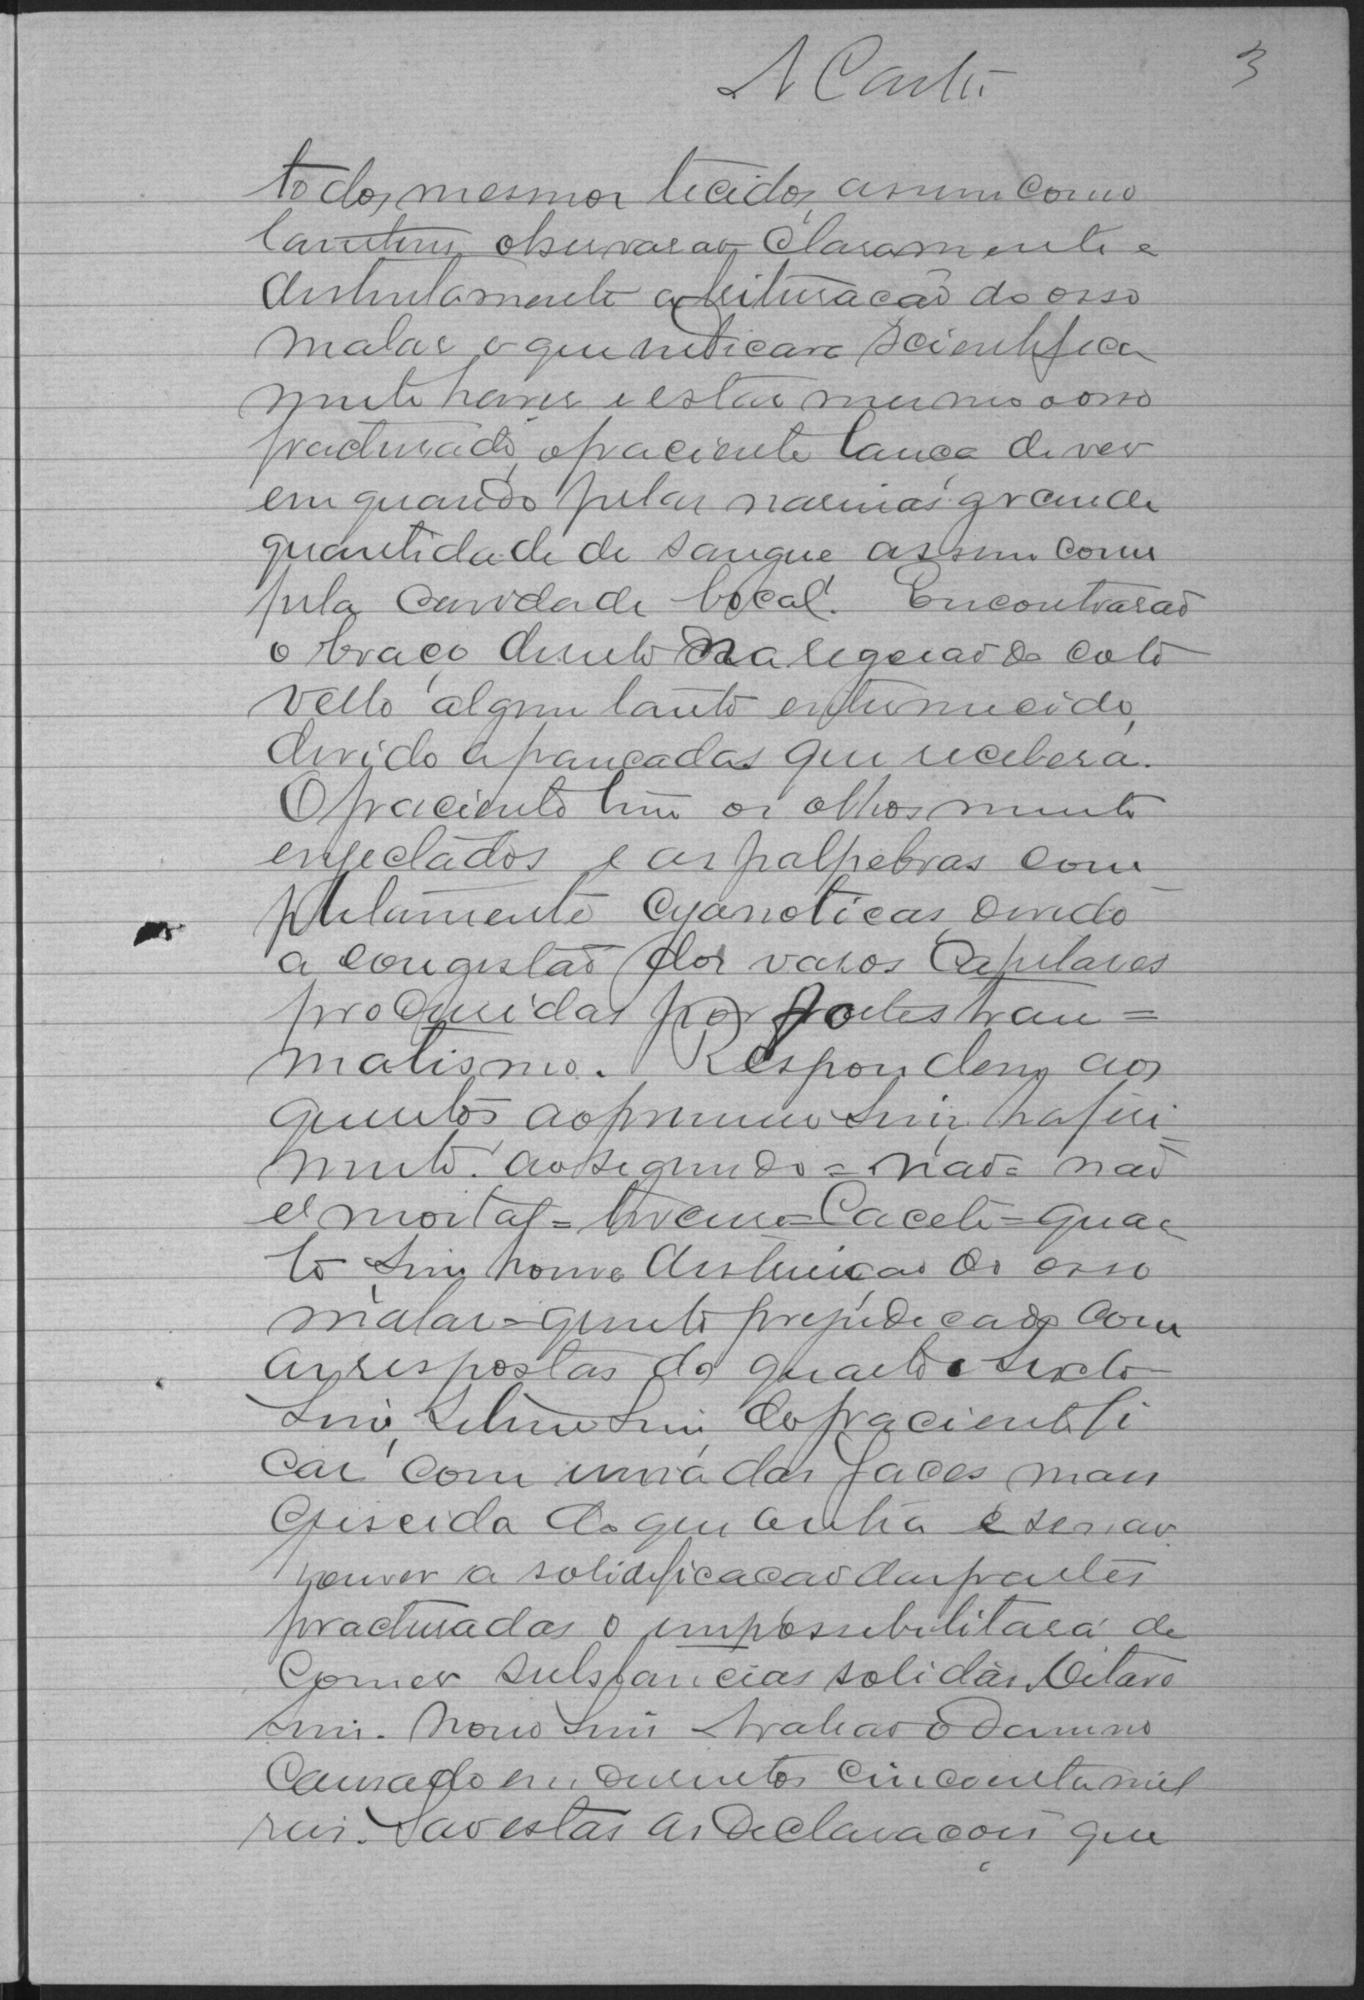 3
to dos mesmos tecidos, assim como
tambem observarão claramente e
distintamente a trituracão do osso
malar o que indicava scientifica
mente haver e estar mesmo o osso
fracturado, o paciente lança de vez
em quando pelas narinas grande
quantidade de sangue assim como
pela cavidade bocal. Encontrarão
o braço direito na região do coto
vello algum tanto entumecido,
devido a pancadas que recebera.
O paciente tem os olhos muito
engectados e as palpebras com
pletamente cyanoticas, devido
a congestão dos vasos capilares
produzidas por fortes trau=
matismo. Respondem aos
quesitos ao primeiro Sim, ha feri
mento. ao segundo = não = não
é mortal = terceiro = Cacete = quar
to Sim houve destruição do osso
malar = quinto prejudicado com
as respostas do quarto e Sexto
Sim, Setimo Sim, do paciente fi
car com uma das faces mais
crescida do que a outra e se não
houver a solidificacão das partes
fracturadas o impossibilitará de
Comer substancias solidas. Oitavo
Sim. Nono Sim Avaliao o damno
Causado em dusentos cincoenta mil
reis. São estas as declaracões que